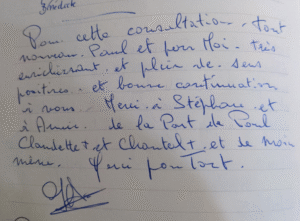 Bénédicte
Pour cette consultation. Tout
nouveau. Paul et pour Moi. très
enrichissant. et plein de sens
positives. et bonne continuation
à vous. Merci à Stéphane et
à de la Part de Paul
Claudette+ et Chantal+ et de Moi
même. Merci pour Tout.